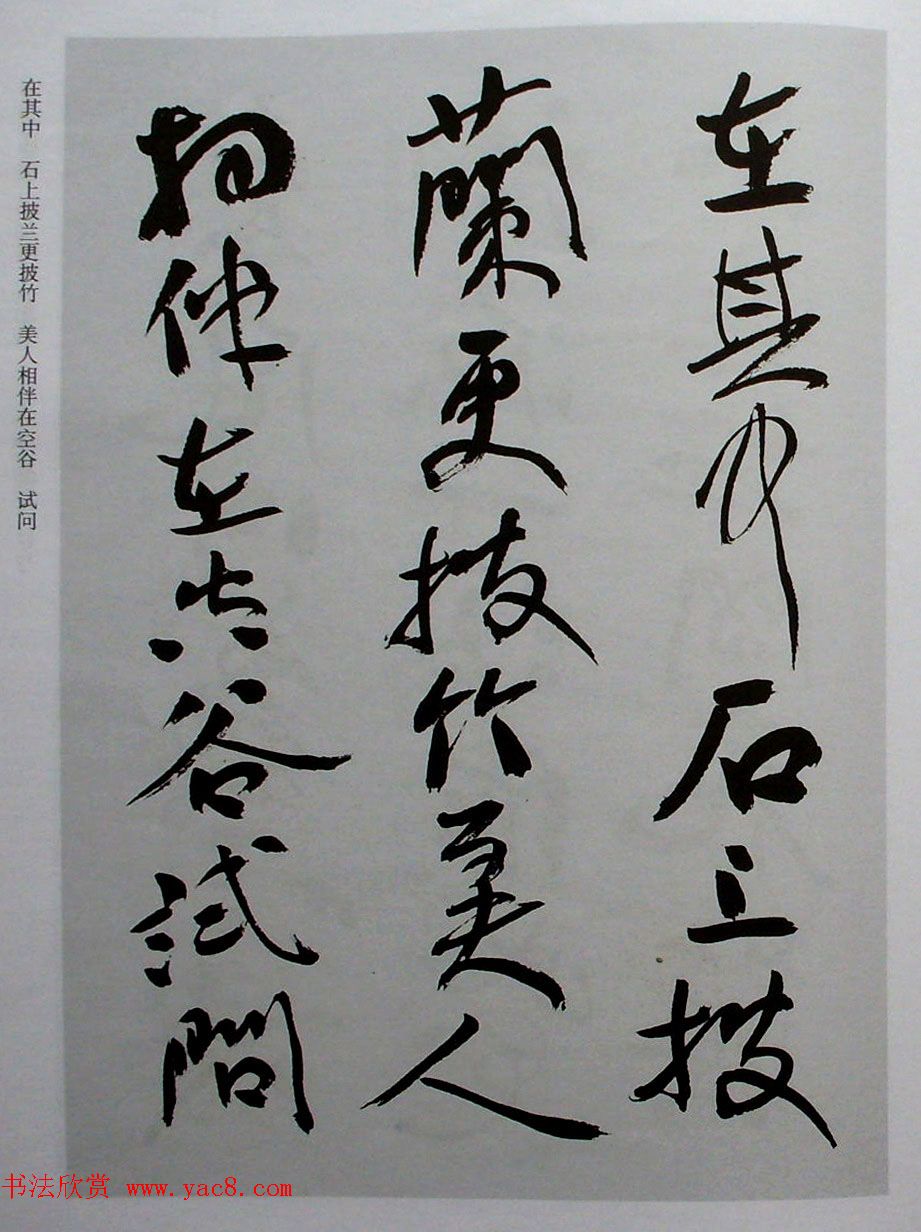 在其中石上披
蘭更披竹美人
相伴在空谷試問
在其中 石上披兰更披竹 美人相伴在空谷 试问
书法欣赏 www.yac8.com